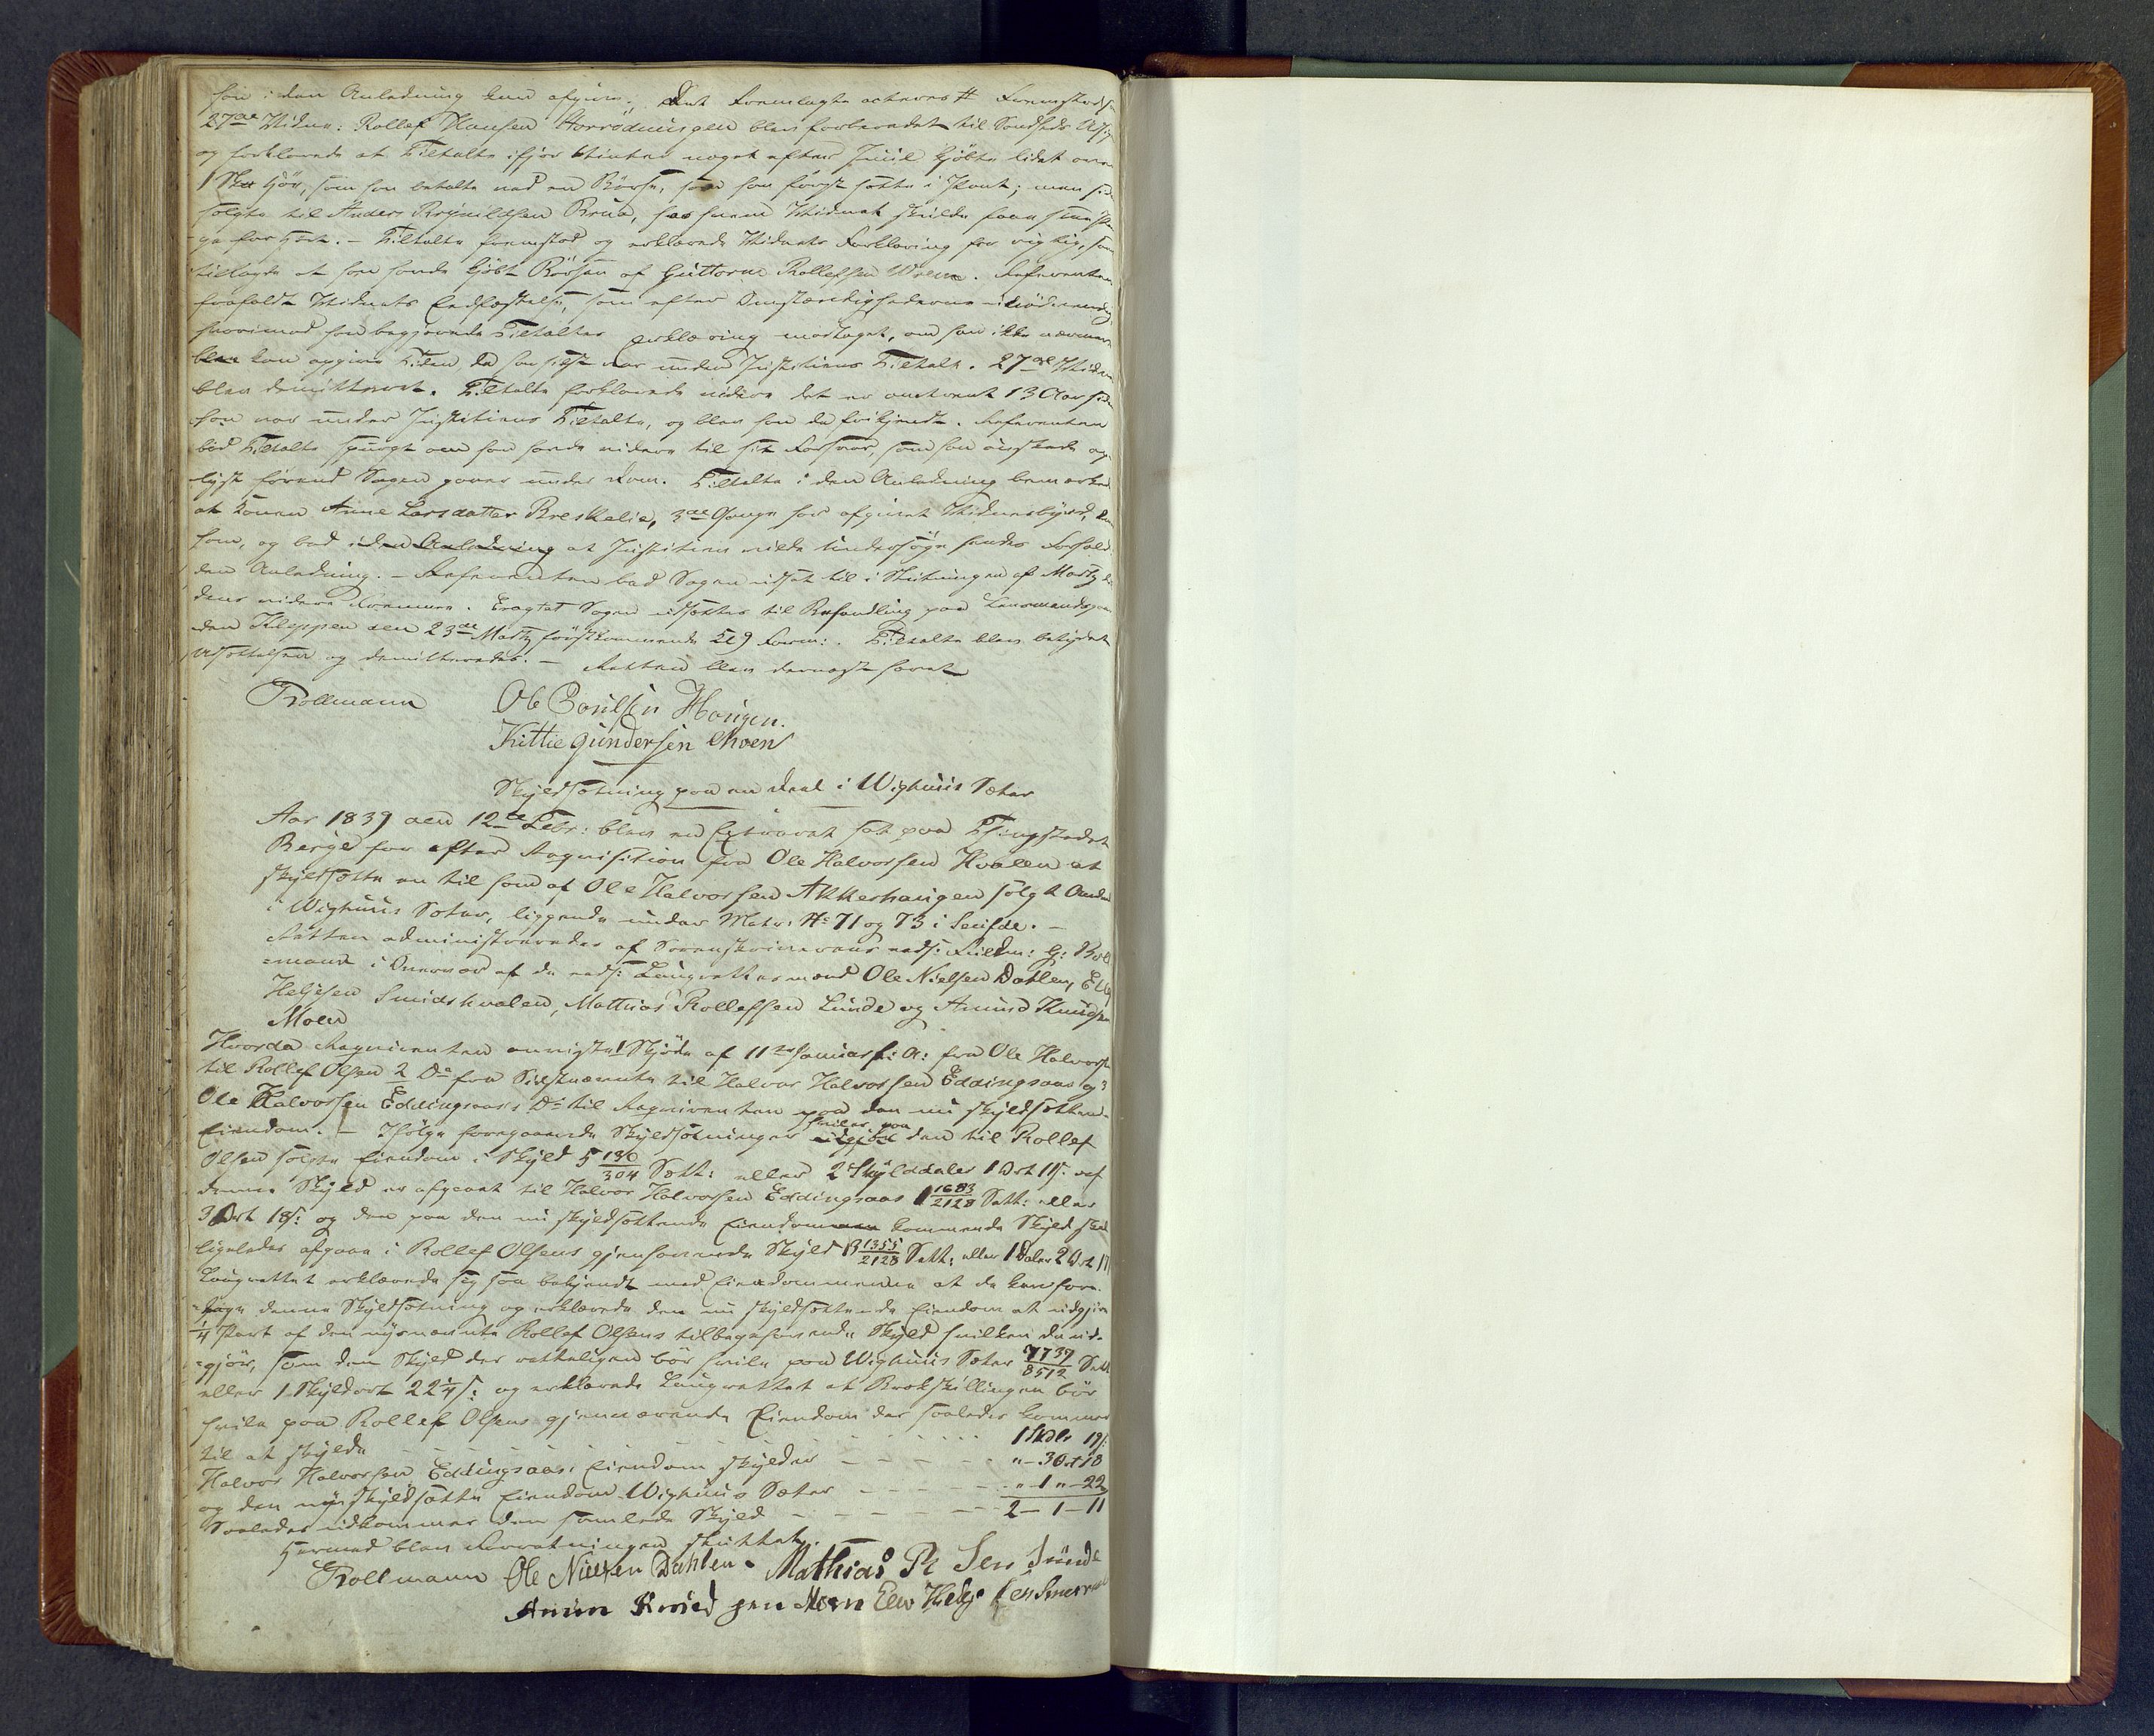 hun i den Anledning kan afgive. Det Fremlagte acteres # Fremstod som
27de Vidne: Rollef Hansen Horrødningen blev forberedet til Sandheds Udsig
og forklarede at Tiltalte ifjor Vinter noget efter Juul kjøbte lidet over
1 Skp Høe, som hun betalte med en Børse, som hun først satte i Pant; men sid
solgte til Anders Reynildsen Brua, hos hvem Vidnet skulde faae sine Pen
ge for Høet. – Tiltalte fremstod og erklærede Vidnets Forklaring for rigtig, som
tillagde at hun havde kjøbt Børsen af Guttorm Rollefsen Moen. Referenten
frafaldt Vidnets Eedfæstelse, som efter Omstændighederne unødvendig
hvorimod han begjærede Tiltaltes Erklæring modtaget, om hun ikke nærmere
kan opgive Tiden da hun sidst var under Justitiens Tiltale. 27de Vidne
blev demitteret. Tiltalte forklarede videre det er omtrent 13 Aar siden
hun var under Justitiens Tiltale, og blev hun da frikjendt. Referenten
bød Tiltalte spurgt om hun havde videre til sit Forsvar, som hun ønskede op
lyst førend Sagen gaaer under Dom. Tiltalte i den Anledning bemærkede
at Konen Anne Larsdatter Breskelie, 3de Gange har afgivet Vidnesbyrd,
som, og bad iden Anledning at Justitien vilde undersøge hendes Forhold
den Anledning. – Referenten bad Sagen udsat til i Slutningen af Marty
dens videre Fremme. Eragtet Sagen udsættes til Behandling paa Lensmandsgaar
den Kleppen den 23de Marty førstkommende Kl 9 Form:. Tiltalte blev betydet
Udsættelsen og demitteredes. – Retten blev dernæst hævet
Trollmann Ole Bonilsen Hougen.
Kittie Gundersen Moen
Skyldsætning paa en Deel i Wighuus Sæter
Aar 1839 den 12te Febr: blev en Extraret sat paa Thingstedet
Berge for efter Requisition fra Ole Halvorsen Kvalen at
skyldsætte en til ham af Ole Halvorsen Akkerhaugen solgt Andeel
i Wighuus Sæter, liggende under Matr: No 71 og 73 i Seufde. –
Retten administreredes af Sorenskriverens eeds: Fuldm: G: Troll
=mann i Overvær af de eeds: Laugrettesmænd Ole Nielsen Dahlen, Elev
Helgesen Smidskvalen, Mathias Rollefsen Lunde og Amund Knudsen
Moen
Hvorda Requirenten anviiste 1 Skjøde af 11te Januar f: A: fra Ole Halvorsen
til Rollef Olsen 2 Do fra Sidstnævnte til Halvor Halvorsen Eddingsaas og 3
Ole Halvorsen Eddingsaas Do til Requirenten paa den nu skyldsættende
Eiendom. – Ifølge foregaaende Skyldsætninger hviler paa udgjør den til Rollef
Olsen solgte Eiendom i Skyld 5 136/304 Sætt: eller 2 Skylddaler 1 Ort 11 s. af
denne Skyld er afgaaet til Halvor Halvorsen Eddingsaas 1 1683/2128 Sætt: eller
3 Ort 18 s: og den paa den nu skyldsættende Eiendom kommende Skyld skal
ligeledes afgaae i Rollef Olsens gjenhavende Skyld 3 1355/2128 Sætt: eller 1 Daler 2 Ort 17
Laugrettet erklærede sig saa bekjendt med Eiendommene at de kan fore=
tage denne Skyldsætning og erklærede den nu skyldsættende Eiendom at udgjøre
1/4 Part af den nysnævnte Rollef Olsens tilbagehavende Skyld hvilken de ud=
=gjør, som den Skyld der rettelig bør hvile paa Wighuus Sæter 7739/8512 Sætt
eller 1 Skyldort 22 1/4 s: og erklærede Laugrettet at Brøkskillingen bør
hvile paa Rollef Olsens gjenværende Eiendom der saaledes kommer
til at skylde - - - - - - - 1 Skdlr 19 s:
Halvor Halvorsen Eddingsaas: Eiendom skylder - - - - " - 3 Ort 18
og den nyeskyldsatte Eiendom Wighuus Sæter - - - - " 1 " - 22
Saaledes udkommer den samlede Skyld - - - - - 2 - 1 - 11
Hermed blev Forretningen sluttet.
Trollmann Ole Nielsen Dahlen. Mathias R Sen Lunde
Amun Knud sen Moen Elev Helge sen